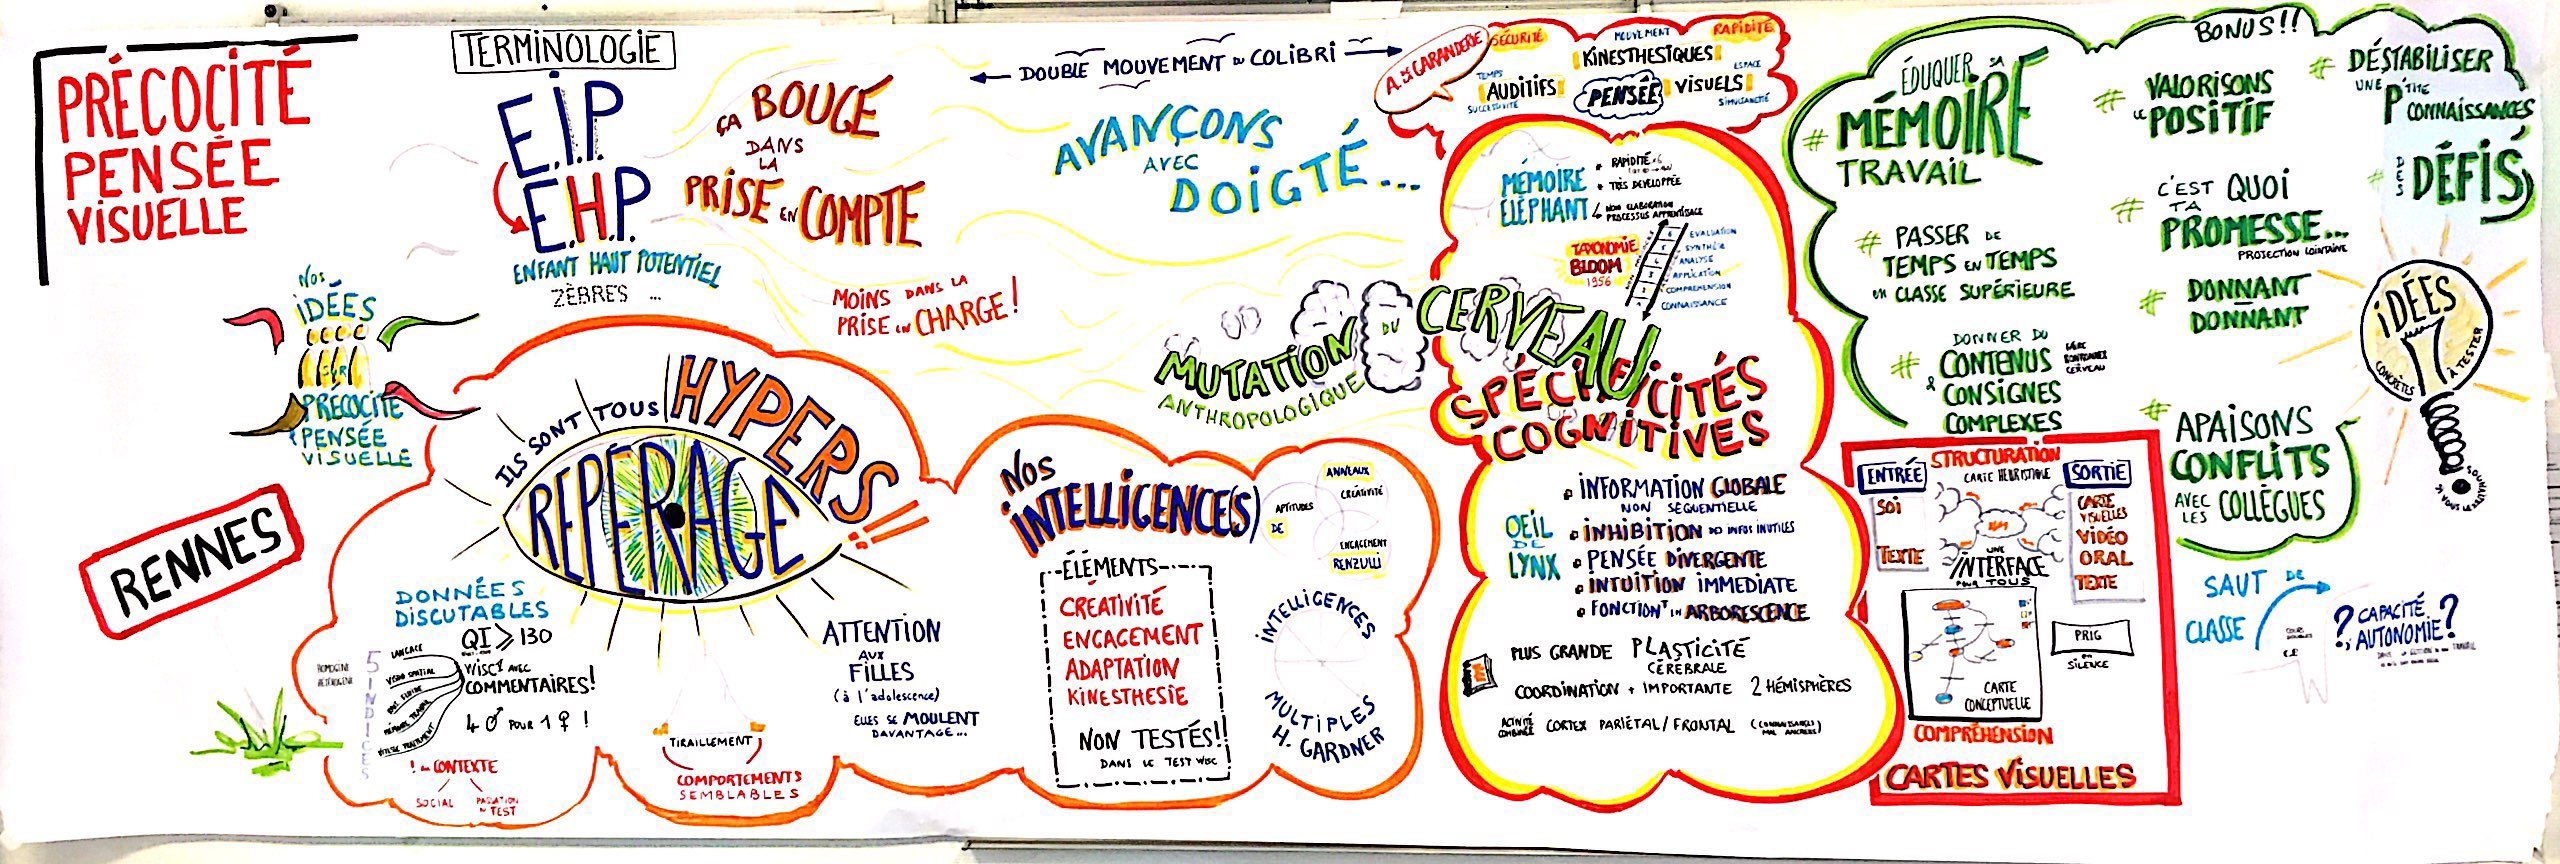 PRÉCOCITÉ
PENSÉE
VISUELLE
TERMINOLOGIE
E.I.P
E.H.P.
ENFANT HAUT POTENTIEL
ZÈBRES ...
ÇA BOUGE
DANS
LA
PRISE EN COMPTE
MOINS DANS LA
PRISE EN CHARGE !
DOUBLE MOUVEMENT DU COLIBRI
AVANÇONS
AVEC
DOIGTÉ...
NOS
IDÉES
SUR
PRÉCOCITÉ
PENSÉE
VISUELLE
RENNES
ILS SONT TOUS HYPERS !!!
REPÉRAGE
DONNÉES
DISCUTABLES
QI ⩾ 130
WISC AVEC
COMMENTAIRES!
4 ♂ POUR 1 ♀ !
5 INDICES
LANGAGE
VISUO SPATIAL
MÉMOIRE TRAVAIL
VITESSE TRAITEMENT
HOMOGÈNE
HÉTÉROGÈNE
! AU CONTEXTE
SOCIAL
PASSATION
DU TEST
TIRAILLEMENT
COMPORTEMENTS
SEMBLABLES
ATTENTION
AUX
FILLES
(à l'adolescence)
ELLES SE MOULENT
DAVANTAGE...
NOS
INTELLIGENCE(S)
ÉLÉMENTS
CRÉATIVITÉ
ENGAGEMENT
ADAPTATION
KINESTHESIE
NON TESTÉS!!
DANS LE TEST WISC
ANNEAUX
CRÉATIVITÉ
APTITUDES
DE
ENGAGEMENT
RENZULLI
INTELLIGENCES
MULTIPLES
H. GARDNER
MUTATION DU CERVEAU
ANTHROPOLOGIQUE
A. DE LA GARANDERIE
SÉCURITÉ
MOUVEMENT
RAPIDITÉ
KINESTHESIQUES
TEMPS
AUDITIFS
SUCCESSIVITÉ
PENSÉE
VISUELS
ESPACE
SIMULTANÉITÉ
MÉMOIRE
ÉLÉPHANT
RAPIDITÉ
+ TRÈS DÉVELOPPÉE
NON ELABORATION
PROCESSUS APPRENTISSAGE
TAXONOMIE
BLOOM
1956
6 EVALUATION
5 SYNTHÈSE
4 ANALYSE
3 APPLICATION
2 COMPREHENSION
1 CONNAISSANCE
SPÉCIFICITÉS
COGNITIVES
OEIL
DE
LYNX
INFORMATION GLOBALE
NON SÉQUENTIELLE
INHIBITION DES INFOS INUTILES
PENSÉE DIVERGENTE
INTUITION IMMEDIATE
FONCTIONᵀ EN ARBORESCENCE
PLUS GRANDE PLASTICITÉ
CÉRÉBRALE
COORDINATION + IMPORTANTE 2 HÉMISPHÈRES
ACTIVITÉ
COMBINÉE
CORTEX PARIÉTAL/FRONTAL
BONUS!!
ÉDUQUER SA
# MÉMOIRE
TRAVAIL
# PASSER DE
TEMPS EN TEMPS
EN CLASSE SUPÉRIEURE
# DONNER DU
CONTENUS
& CONSIGNES
COMPLEXES
# VALORISONS
LE POSITIF
# C'EST QUOI
TA
PROMESSE...
PROJECTION LOINTAINE
# DONNANT
DONNANT
# APAISONS
CONFLITS
AVEC
LES COLLÈGUES
# DÉSTABILISER
UNE P'TITE
CONNAISSANCES
# DES DÉFIS
7 IDÉES
CONCRÈTES
À TESTER
STRUCTURATION
CARTE HEURISTIQUE
ENTRÉE
SOI
TEXTE
SORTIE
CARTE
VISUELLES
VIDÉO
ORAL
TEXTE
UNE
INTERFACE
POUR TOUS
CARTE
CONCEPTUELLE
PRIG
EN
SILENCE
COMPRÉHENSION
CARTES VISUELLES
SAUT DE
CLASSE
? CAPACITÉ
AUTONOMIE?